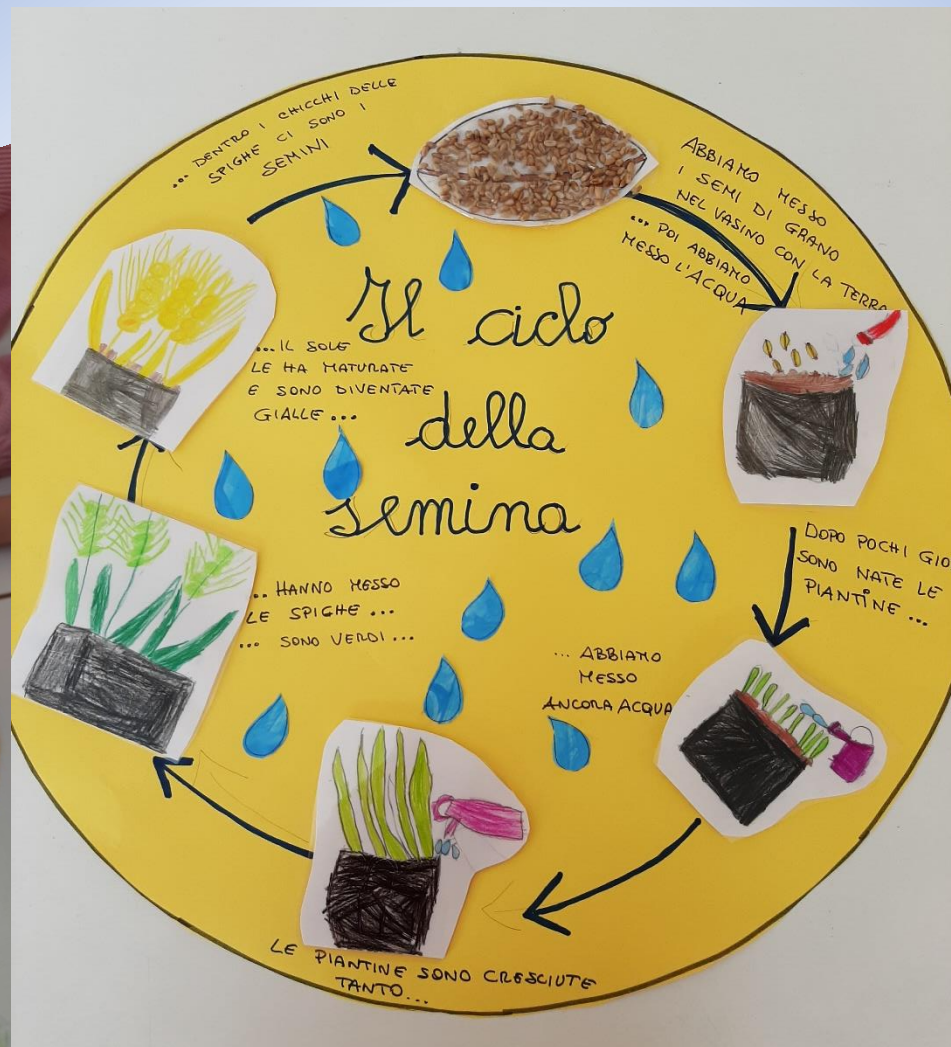 Il ciclo
della
semina
ABBIAMO MESSO
I SEMI DI GRANO
NEL VASINO CON LA TERRA
... POI ABBIAMO
MESSO L'ACQUA
DOPO POCHI GIO
SONO NATE LE
PIANTINE ...
... ABBIAMO
MESSO
ANCORA ACQUA
LE PIANTINE SONO CRESCIUTE
TANTO...
... HANNO MESSO
LE SPIGHE ...
... SONO VERDI ...
... IL SOLE
LE HA MATURATE
E SONO DIVENTATE
GIALLE ...
... DENTRO I CHICCHI DELLE
SPIGHE CI SONO I
SEMINI